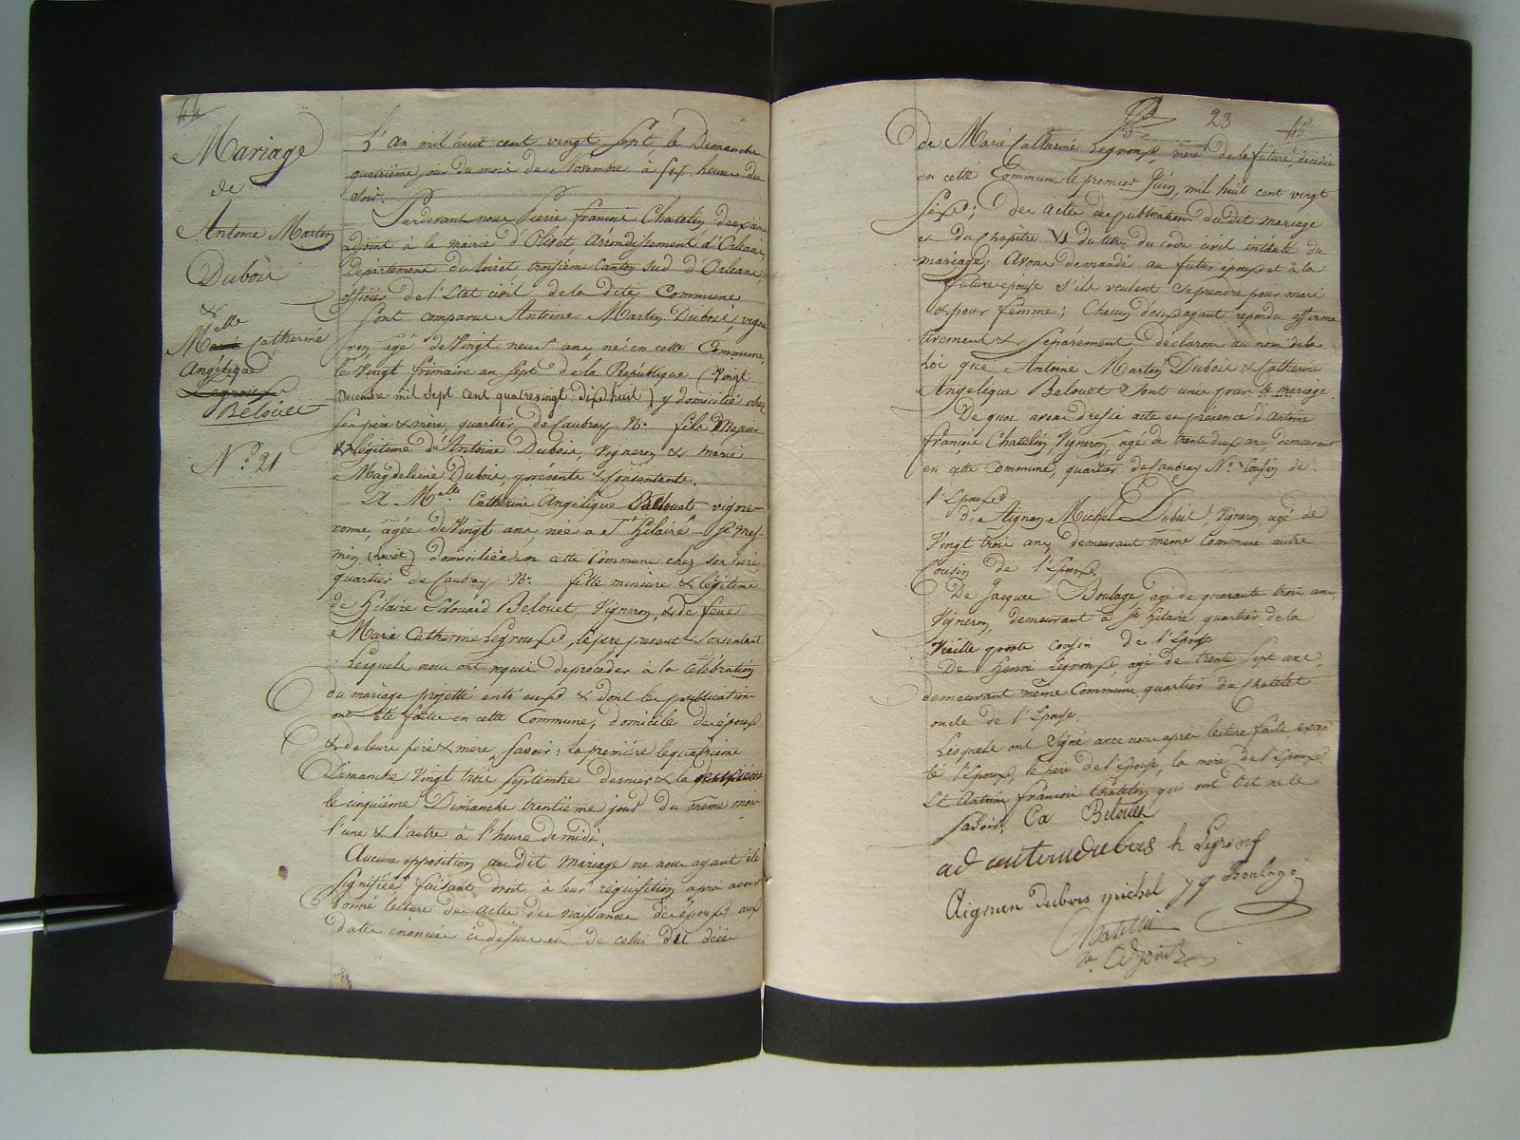 44
Mariage
de
Antoine Martin
Dubois
&
Melle Catherine
Angélique
Belouet
N.º 21
L'An mil huit cent vingt sept le Dimanche
quatrième jour du mois de Novembre à six heures du
soir.
Pardevant nous Pierre francois Chatelin deuxième
adjoint à la mairie d'Olivet Arondissement d'Orléans,
Département du Loiret troisième Canton Sud d'Orléans,
officier de l'Etat civil de la dite Commune
Sont comparus Antoine Martin Dubois, vigne
ron agé de Vingt neuf ans né en cette Commune,
le Vingt frimaire an Sept de la République (Vingt
Decembre mil Sept Cent quatrevingt dix huit) y domicilié chez
ses père & mère, quartier de Caubray N.º fils majeur
& légitime d'Antoine Dubois, Vigneron & Marie
Magdeleine Dubois, présents & consentants.
Et Melle Catherine Angélique Belouet vigne-
ronne, agée de Vingt ans née à St Hilaire St Mes-
min (Loiret) domiciliée en cette Commune chez son père
quartier de Caubray N.º fille mineure & légitime
de Hilaire Edouard Belouet, Vigneron, & de feue
Marie Catherine Legroux, le père present & consentant
Lesquels nous ont requis de procéder à la Célébration
du mariage projetté entre eux & dont les publications
ont été faites en cette Commune, domicile des époux
& de leurs père & mère, savoir: la première le quatrième
Dimanche Vingt trois Septembre dernier & la
le cinquième Dimanche trentième jour du même mois
l'une & l'autre à l'heure de midi.
Aucune opposition au dit mariage ne nous ayant été
Signifiée faisant droit à leur réquisition après avoir
Donné lecture des actes de naissance des époux aux
dates énoncées ci dessus de celui Dit décès
23
45
de Marie Catherine Legroux, mère de la future, décédée
en cette Commune le premier Juin, mil huit cent vingt
Six; des actes de publication du dit mariage
et du Chapitre VI du titre du code civil intitulé du
mariage; Avons demandé au futur époux et à la
future épouse s'ils veulent se prendre pour mari
& pour femme; Chacun d'eux ayant répondu affirma
tivement & Séparément Déclarons au nom de la
Loi que Antoine Martin Dubois & Catherine
Angélique Belouet sont unis par le mariage.
De quoi avons dressé acte en présence d'Antoine
françois Chatelin, Vigneron, agé de trente deux ans, demeurant
en cette Commune, quartier de Caubray N.º Cousin de
l'Epoux
de Aignan Michel Dubois, Vigneron agé de
Vingt trois ans, demeurant même Commune autre
Cousin de l'Epoux
De Jacques Boulage, agé de quarante trois ans,
Vigneron, demeurant à St Hilaire quartier de la
Vieille Cousin de l'Epouse
De Henri Legroux, agé de trente Sept ans,
demeurant même Commune quartier du Chatelet
oncle de l'Epouse.
Lesquels ont Signé avec nous après lecture faite excep
té l'Epoux, le père de l'Epouse, la mère de l'Epoux
Et Antoine francois Chatelin, qui ont Dit ne le
savoir. Ca Belouet
ad antoinedubois h Legroux
Aignan dubois michel boulage
Chatelin
Adjoint